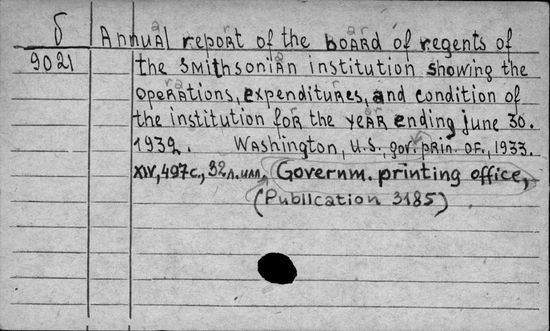 δ Annual report of the board of regents of
9021 the Smithsonian institution showing the
operations, expenditures, and condition of
the institution for the year ending june 30.
1932. Washington, U.S., gov. prin. of., 1933.
XIV, 497c., 32л.илл. Governm. printing office,
(Publication 3185)